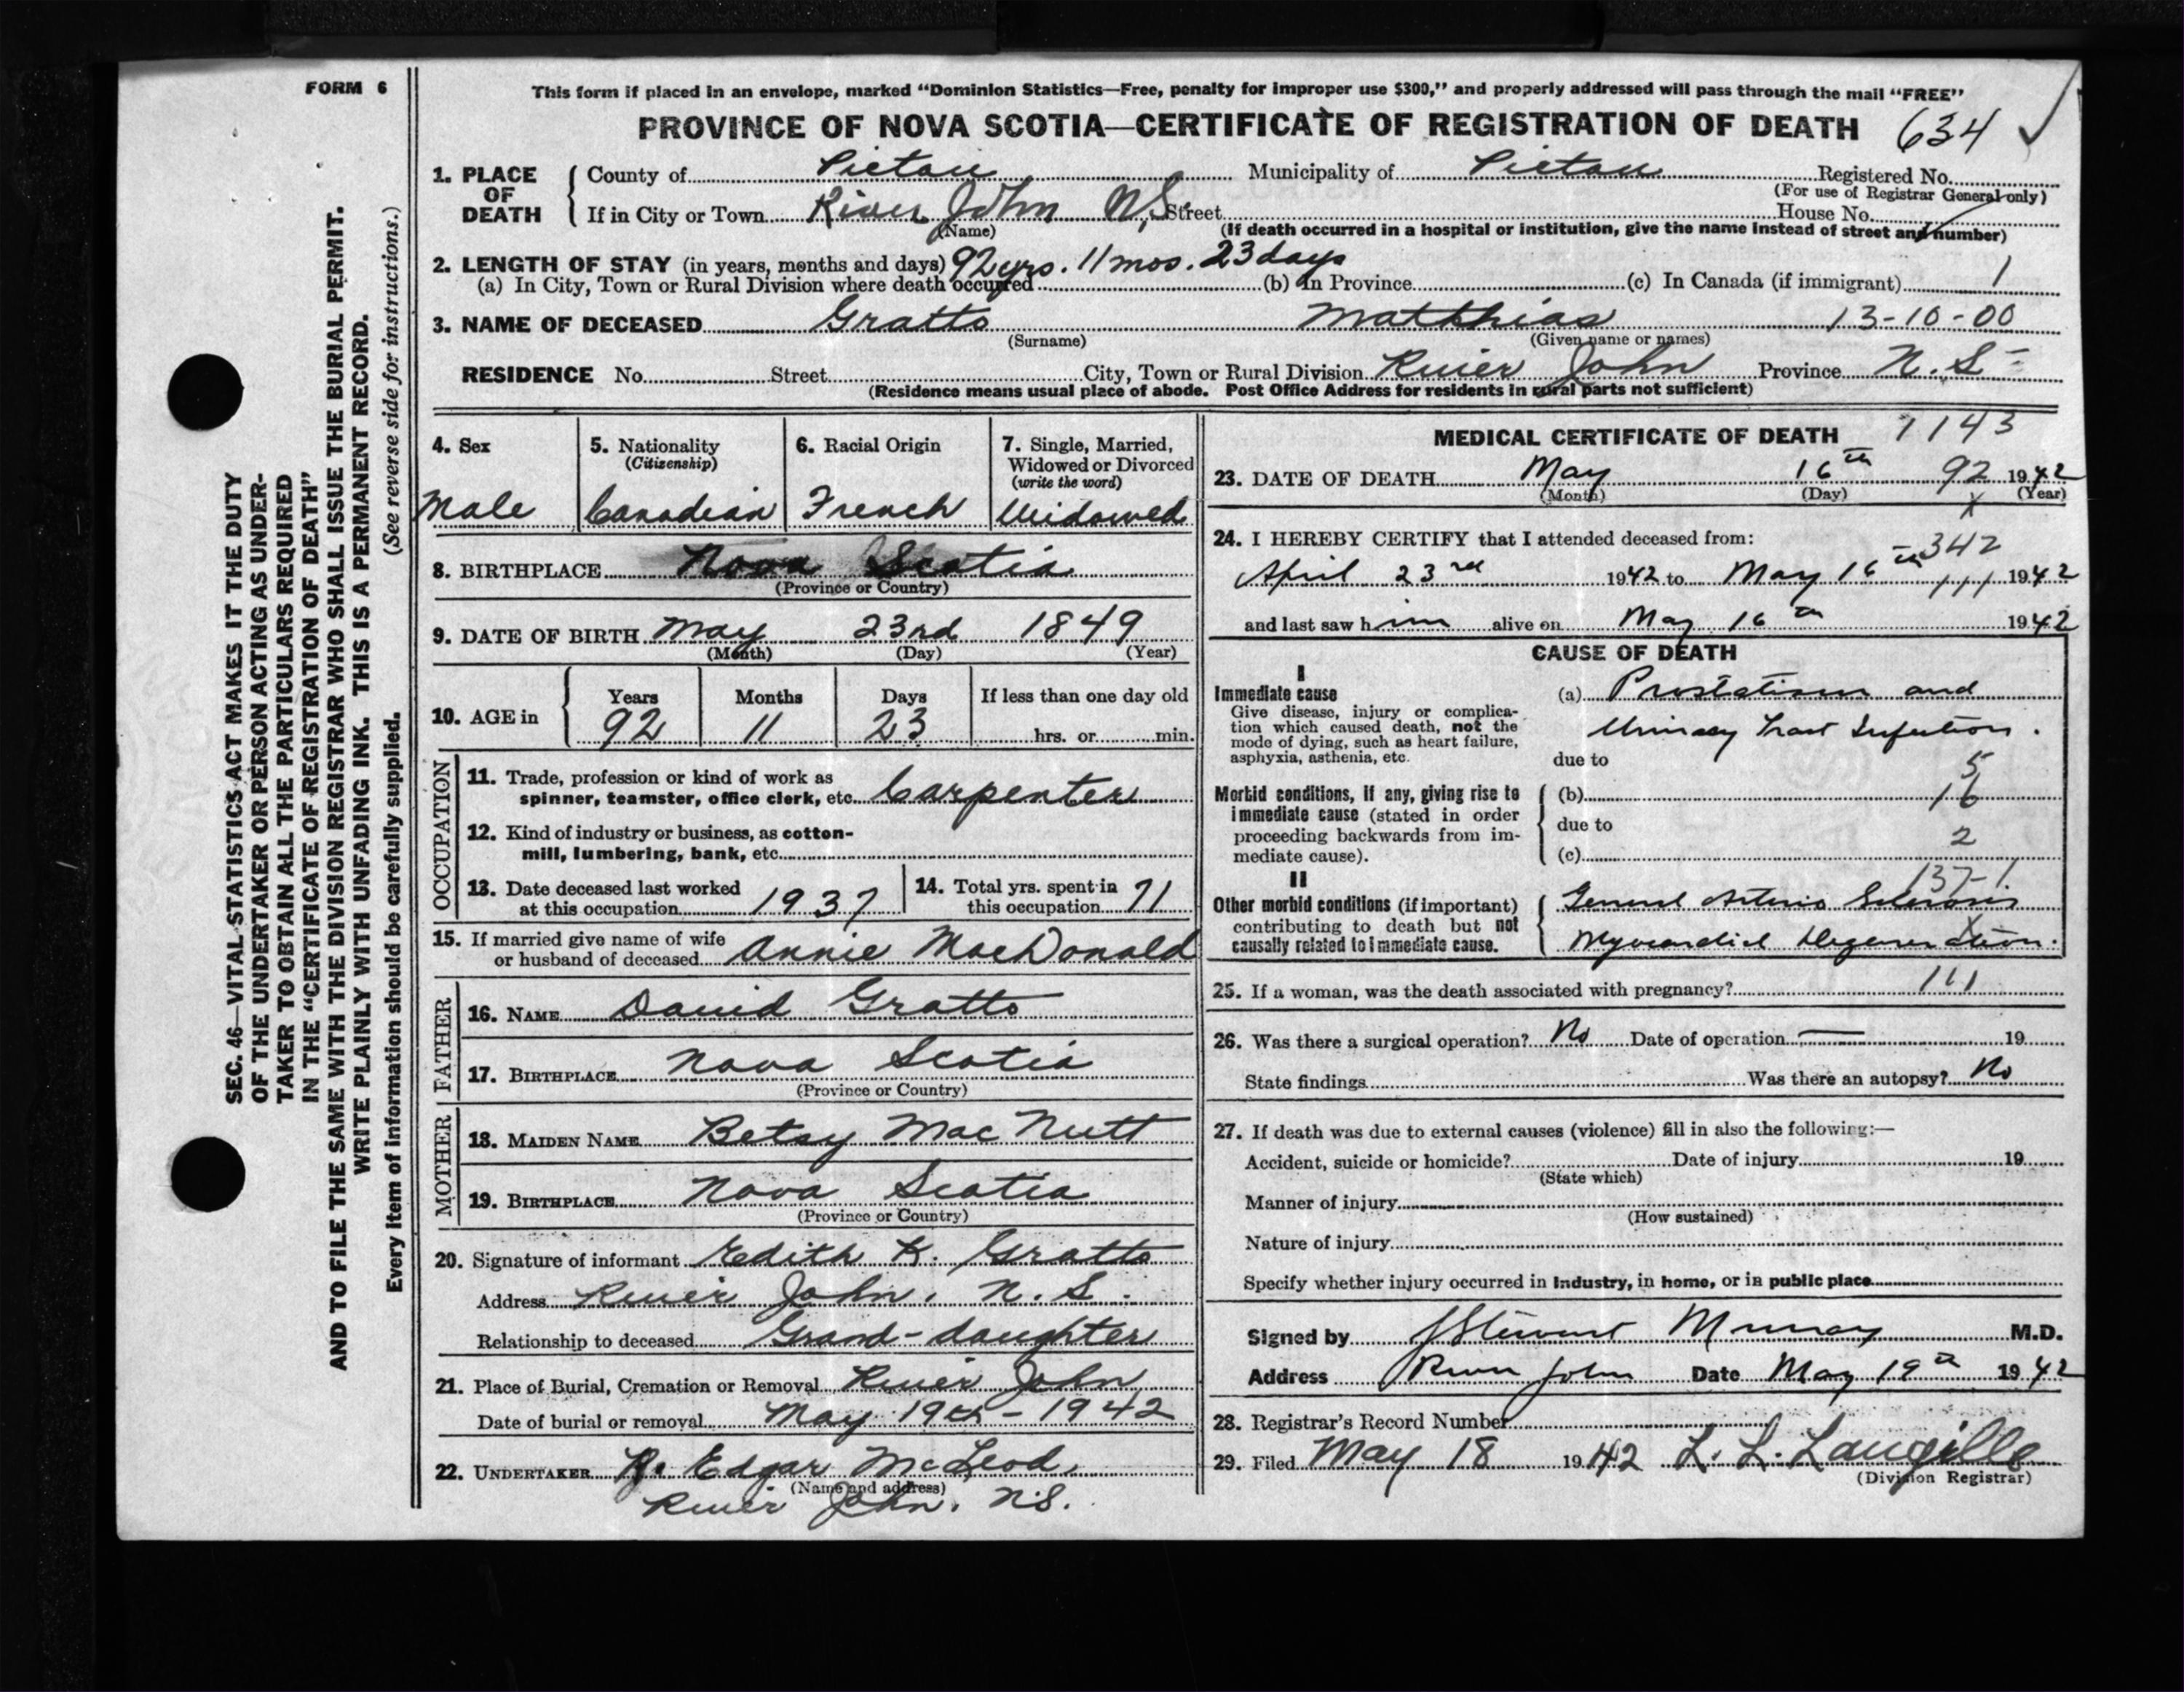 FORM 6
This form if placed in an envelope, marked "Dominion Statistics—Free, penalty for improper use $300," and properly addressed will pass through the mail "FREE"
PROVINCE OF NOVA SCOTIA—CERTIFICATE OF REGISTRATION OF DEATH 634
1. PLACE OF DEATH
County of Pictou Municipality of Pictou Registered No.
(For use of Registrar General only)
If in City or Town River John N.S. Street House No.
(Name) (If death occurred in a hospital or institution, give the name instead of street and number)
2. LENGTH OF STAY (in years, months and days) 92 yrs. 11 mos. 23 days
(a) In City, Town or Rural Division where death occurred (b) In Province (c) In Canada (if immigrant) 1
3. NAME OF DECEASED Gratto Matthias 13-10-00
(Surname) (Given name or names)
RESIDENCE No. Street City, Town or Rural Division River John Province N.S-
(Residence means usual place of abode. Post Office Address for residents in rural parts not sufficient)
4. Sex
Male
5. Nationality
(Citizenship)
Canadian
6. Racial Origin
French
7. Single, Married,
Widowed or Divorced
(write the word)
Widowed
8. BIRTHPLACE Nova Scotia
(Province or Country)
9. DATE OF BIRTH May 23rd 1849
(Month) (Day) (Year)
10. AGE in
Years Months Days If less than one day old
92 11 23 hrs. or min.
OCCUPATION
11. Trade, profession or kind of work as
spinner, teamster, office clerk, etc. Carpenter
12. Kind of industry or business, as cotton-
mill, lumbering, bank, etc.
13. Date deceased last worked
at this occupation 1937
14. Total yrs. spent in
this occupation 71
15. If married give name of wife
or husband of deceased Annie MacDonald
FATHER
16. NAME David Gratto
17. BIRTHPLACE Nova Scotia
(Province or Country)
MOTHER
18. MAIDEN NAME Betsy MacNutt
19. BIRTHPLACE Nova Scotia
(Province or Country)
20. Signature of informant Edith K. Gratto
Address River John, N.S.
Relationship to deceased Grand-daughter
21. Place of Burial, Cremation or Removal River John
Date of burial or removal May 19th - 1942
22. UNDERTAKER R. Edgar McLeod,
(Name and address)
River John, N.S.
MEDICAL CERTIFICATE OF DEATH 7143
23. DATE OF DEATH May 16th 92 1942
(Month) (Day) x (Year)
24. I HEREBY CERTIFY that I attended deceased from: 342
April 23rd 1942 to May 16th 111 1942
and last saw him alive on May 16th 1942
CAUSE OF DEATH
I
Immediate cause
Give disease, injury or complica-
tion which caused death, not the
mode of dying, such as heart failure,
asphyxia, asthenia, etc.
(a) Prostatism and
Urinary Tract Infection.
due to 5
Morbid conditions, if any, giving rise to
immediate cause (stated in order
proceeding backwards from im-
mediate cause).
(b) 16
due to 2
(c)
137-1.
II
Other morbid conditions (if important)
contributing to death but not
causally related to immediate cause.
General Arterio Sclerosis
x
Myocardial Degeneration.
25. If a woman, was the death associated with pregnancy? 111
26. Was there a surgical operation? No Date of operation — 19
State findings Was there an autopsy? No
27. If death was due to external causes (violence) fill in also the following:—
Accident, suicide or homicide? Date of injury 19
(State which)
Manner of injury
(How sustained)
Nature of injury
Specify whether injury occurred in industry, in home, or in public place
Signed by J Stewart Murray M.D.
Address River John Date May 19th 1942
28. Registrar's Record Number
29. Filed May 18 1942 L. L. Langille
(Division Registrar)
SEC. 46—VITAL STATISTICS ACT MAKES IT THE DUTY
OF THE UNDERTAKER OR PERSON ACTING AS UNDER-
TAKER TO OBTAIN ALL THE PARTICULARS REQUIRED
IN THE "CERTIFICATE OF REGISTRATION OF DEATH"
AND TO FILE THE SAME WITH THE DIVISION REGISTRAR WHO SHALL ISSUE THE BURIAL PERMIT.
WRITE PLAINLY WITH UNFADING INK. THIS IS A PERMANENT RECORD.
Every item of information should be carefully supplied. (See reverse side for instructions.)